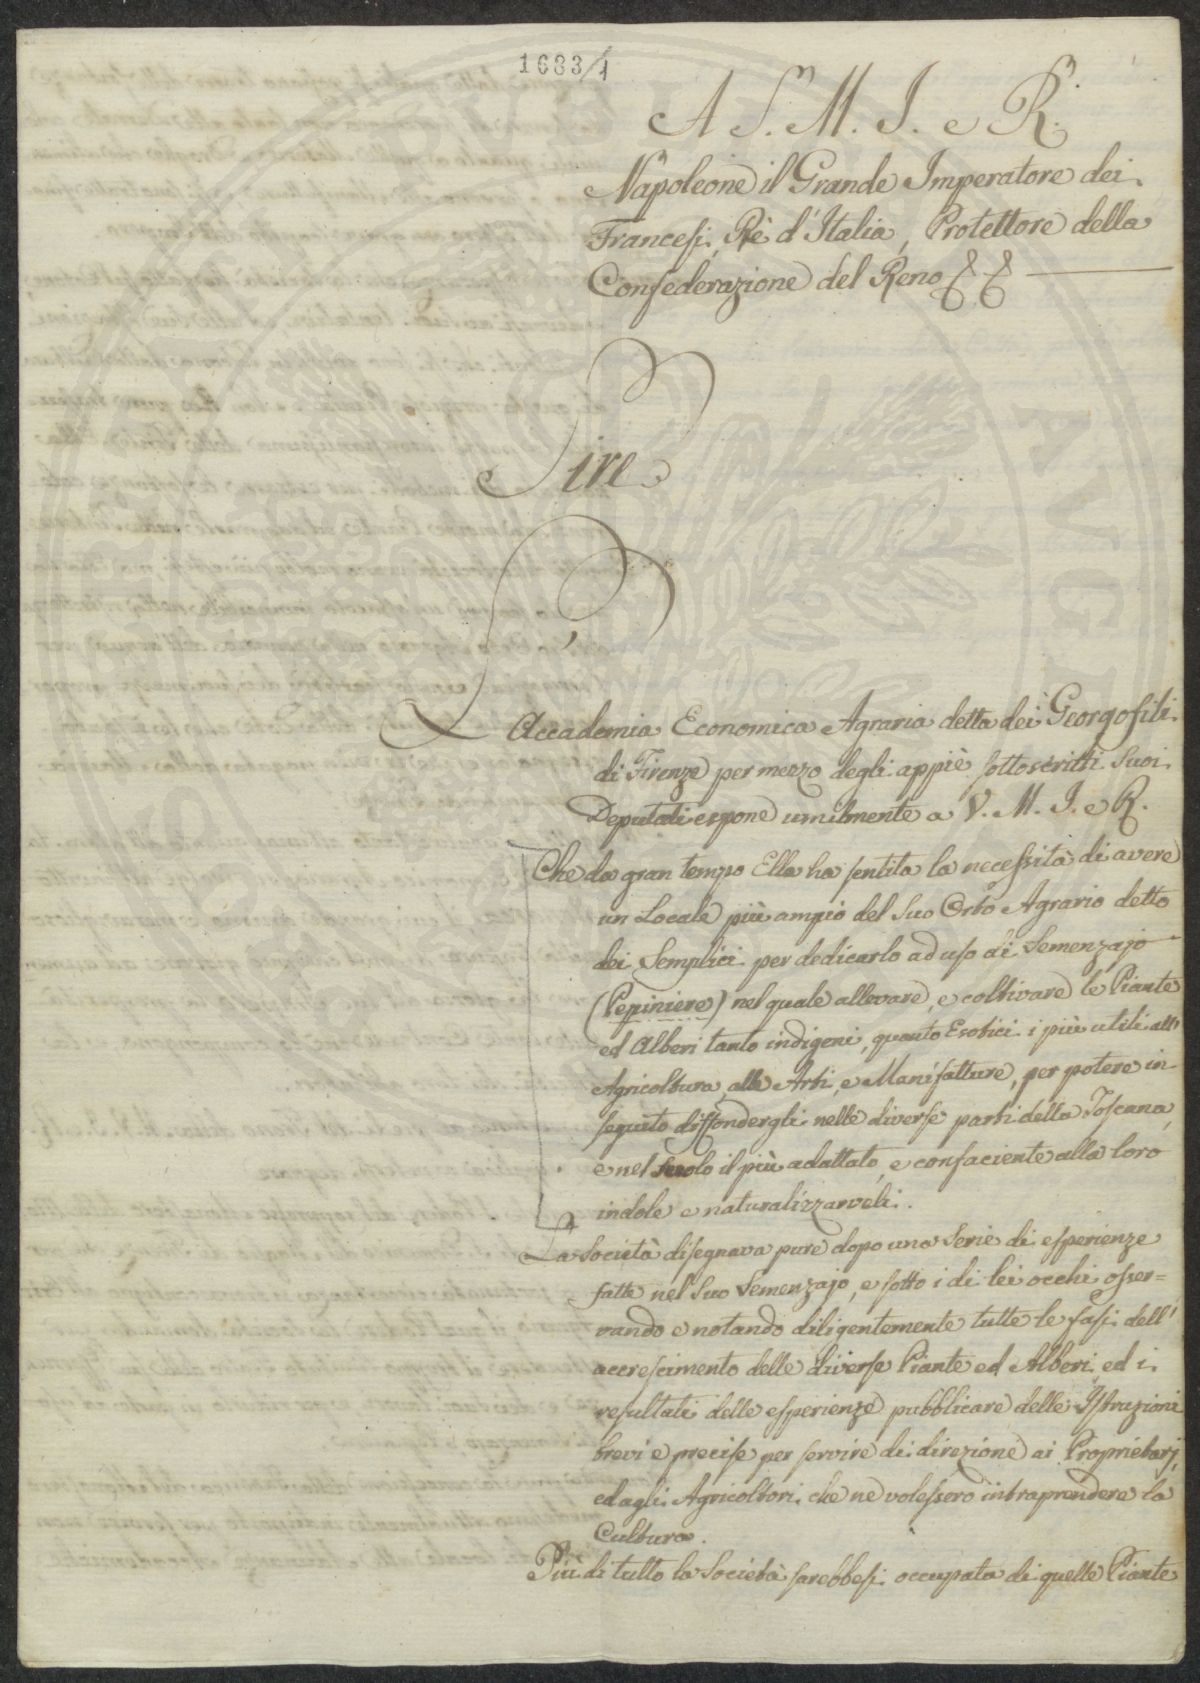 1683/1
A S. M. I. e R.
Napoleone il Grande Imperatore dei
Francesi, Rè d'Italia, Protettore della
Confederazione del Reno
Sire
L'
Accademia Economica Agraria detta dei Georgofili
di Firenze per mezzo degli appiè sottoscritti Suoi
Deputati espone umilmente a V. M. I. e R.
Che da gran tempo Ella ha sentita la necessità di avere
un Locale più ampio del Suo Orto Agrario detto
dei Semplici per dedicarlo ad uso di Semenzajo
(Pepiniere) nel quale allevare, e coltivare le Piante
ed Alberi tanto indigeni, quanto Esotici i più utili all'
Agricoltura, alle Arti, e Manifatture, per potere in
seguito diffondergli nelle diverse parti della Toscana,
e nel suolo il più adattato, e confaciente alla loro
indole e naturalizzarveli.
La Società disegnava pure dopo una Serie di esperienze
fatte nel Suo Semenzajo, e sotto i di lei occhi osser=
vando e notando diligentemente tutte le fasi dell'
accrescimento delle diverse Piante ed Alberi ed i
resultati delle esperienze pubblicare delle Istruzioni
brevi e precise per servire di direzione ai Proprietarj,
ed agli Agricoltori che ne volessero intraprendere la
Cultura.
Più di tutto la Società sarebbesi occupata di quelle Piante